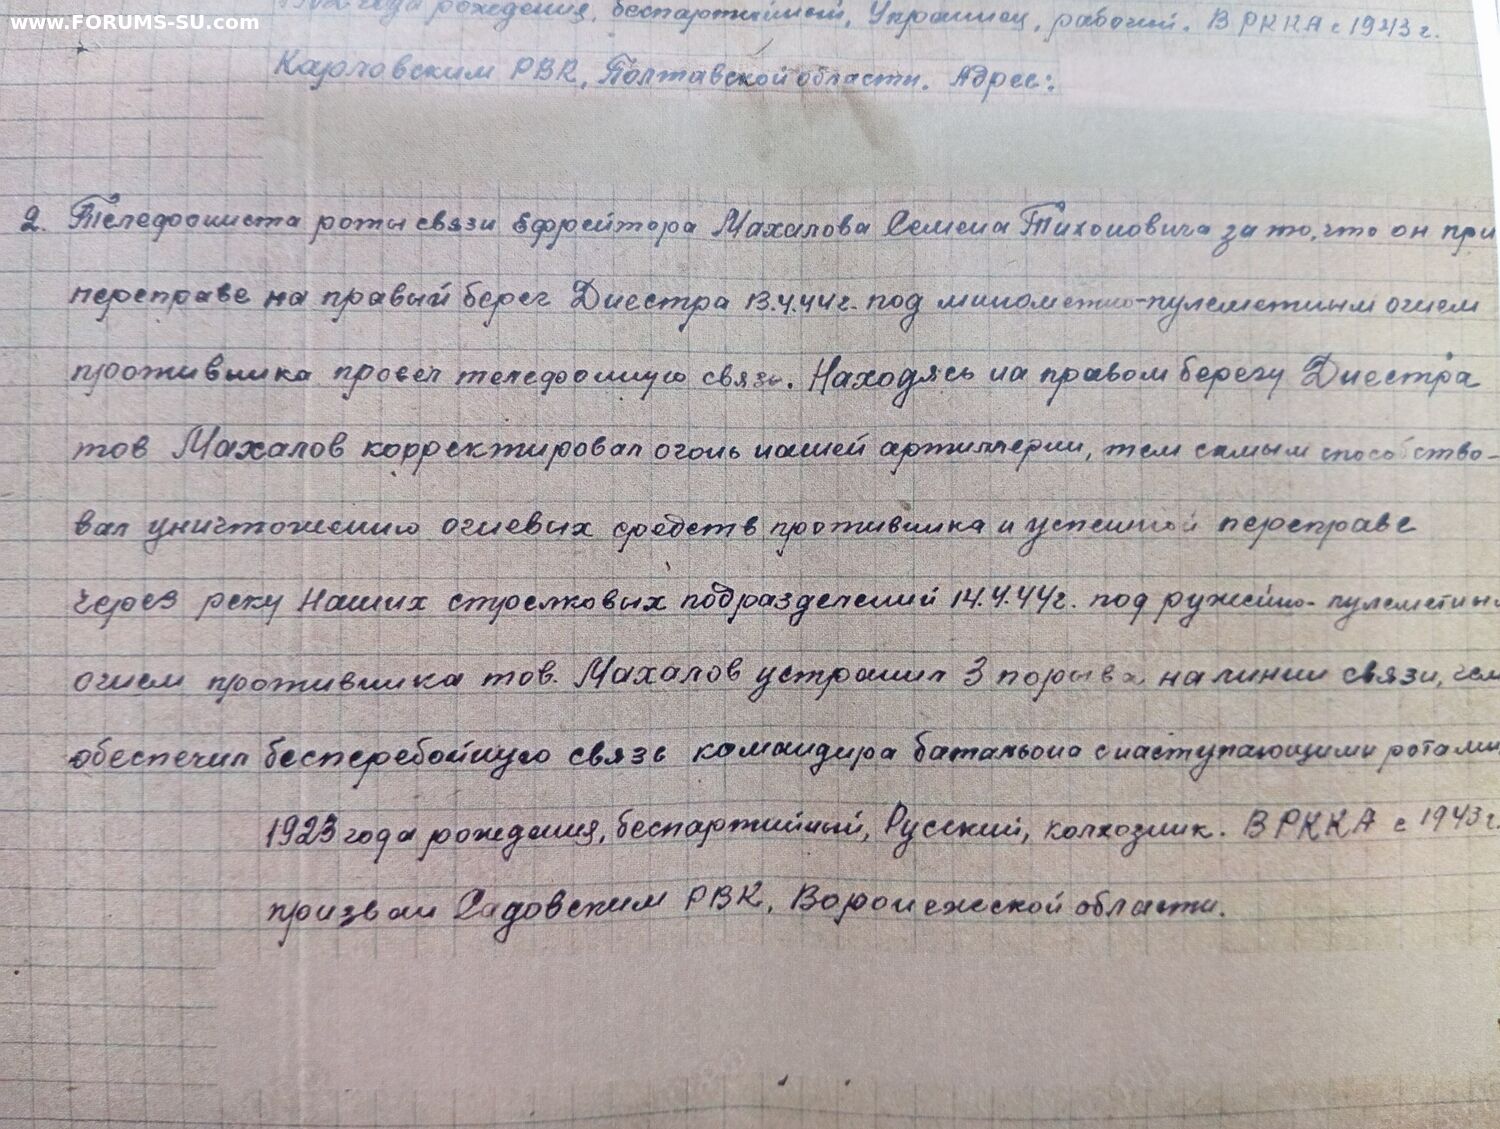 www.FORUMS-SU.com
года рождения, беспартийный, Украинец, рабочий. В РККА с 1943 г.
Карловским РВК, Полтавской области. Адрес:
2. Телефониста роты связи Ефрейтора Махалова Семена Тихоновича за то, что он при
переправе на правый берег Днестра 13.4.44г. под минометно-пулеметным огнем
противника провел телефонную связь. Находясь на правом берегу Днестра
тов Махалов корректировал огонь нашей артиллерии, тем самым способство-
вал уничтожению огневых средств противника и успешной переправе
через реку Наших стрелковых подразделений 14.4.44г. под ружейно-пулеметным
огнем противника тов. Махалов устранил 3 порыва на линии связи, чем
обеспечил бесперебойную связь командира батальона с наступающими ротами
1923 года рождения, беспартийный, Русский, колхозник. В РККА с 1943 г.
призван Садовским РВК, Воронежской области.